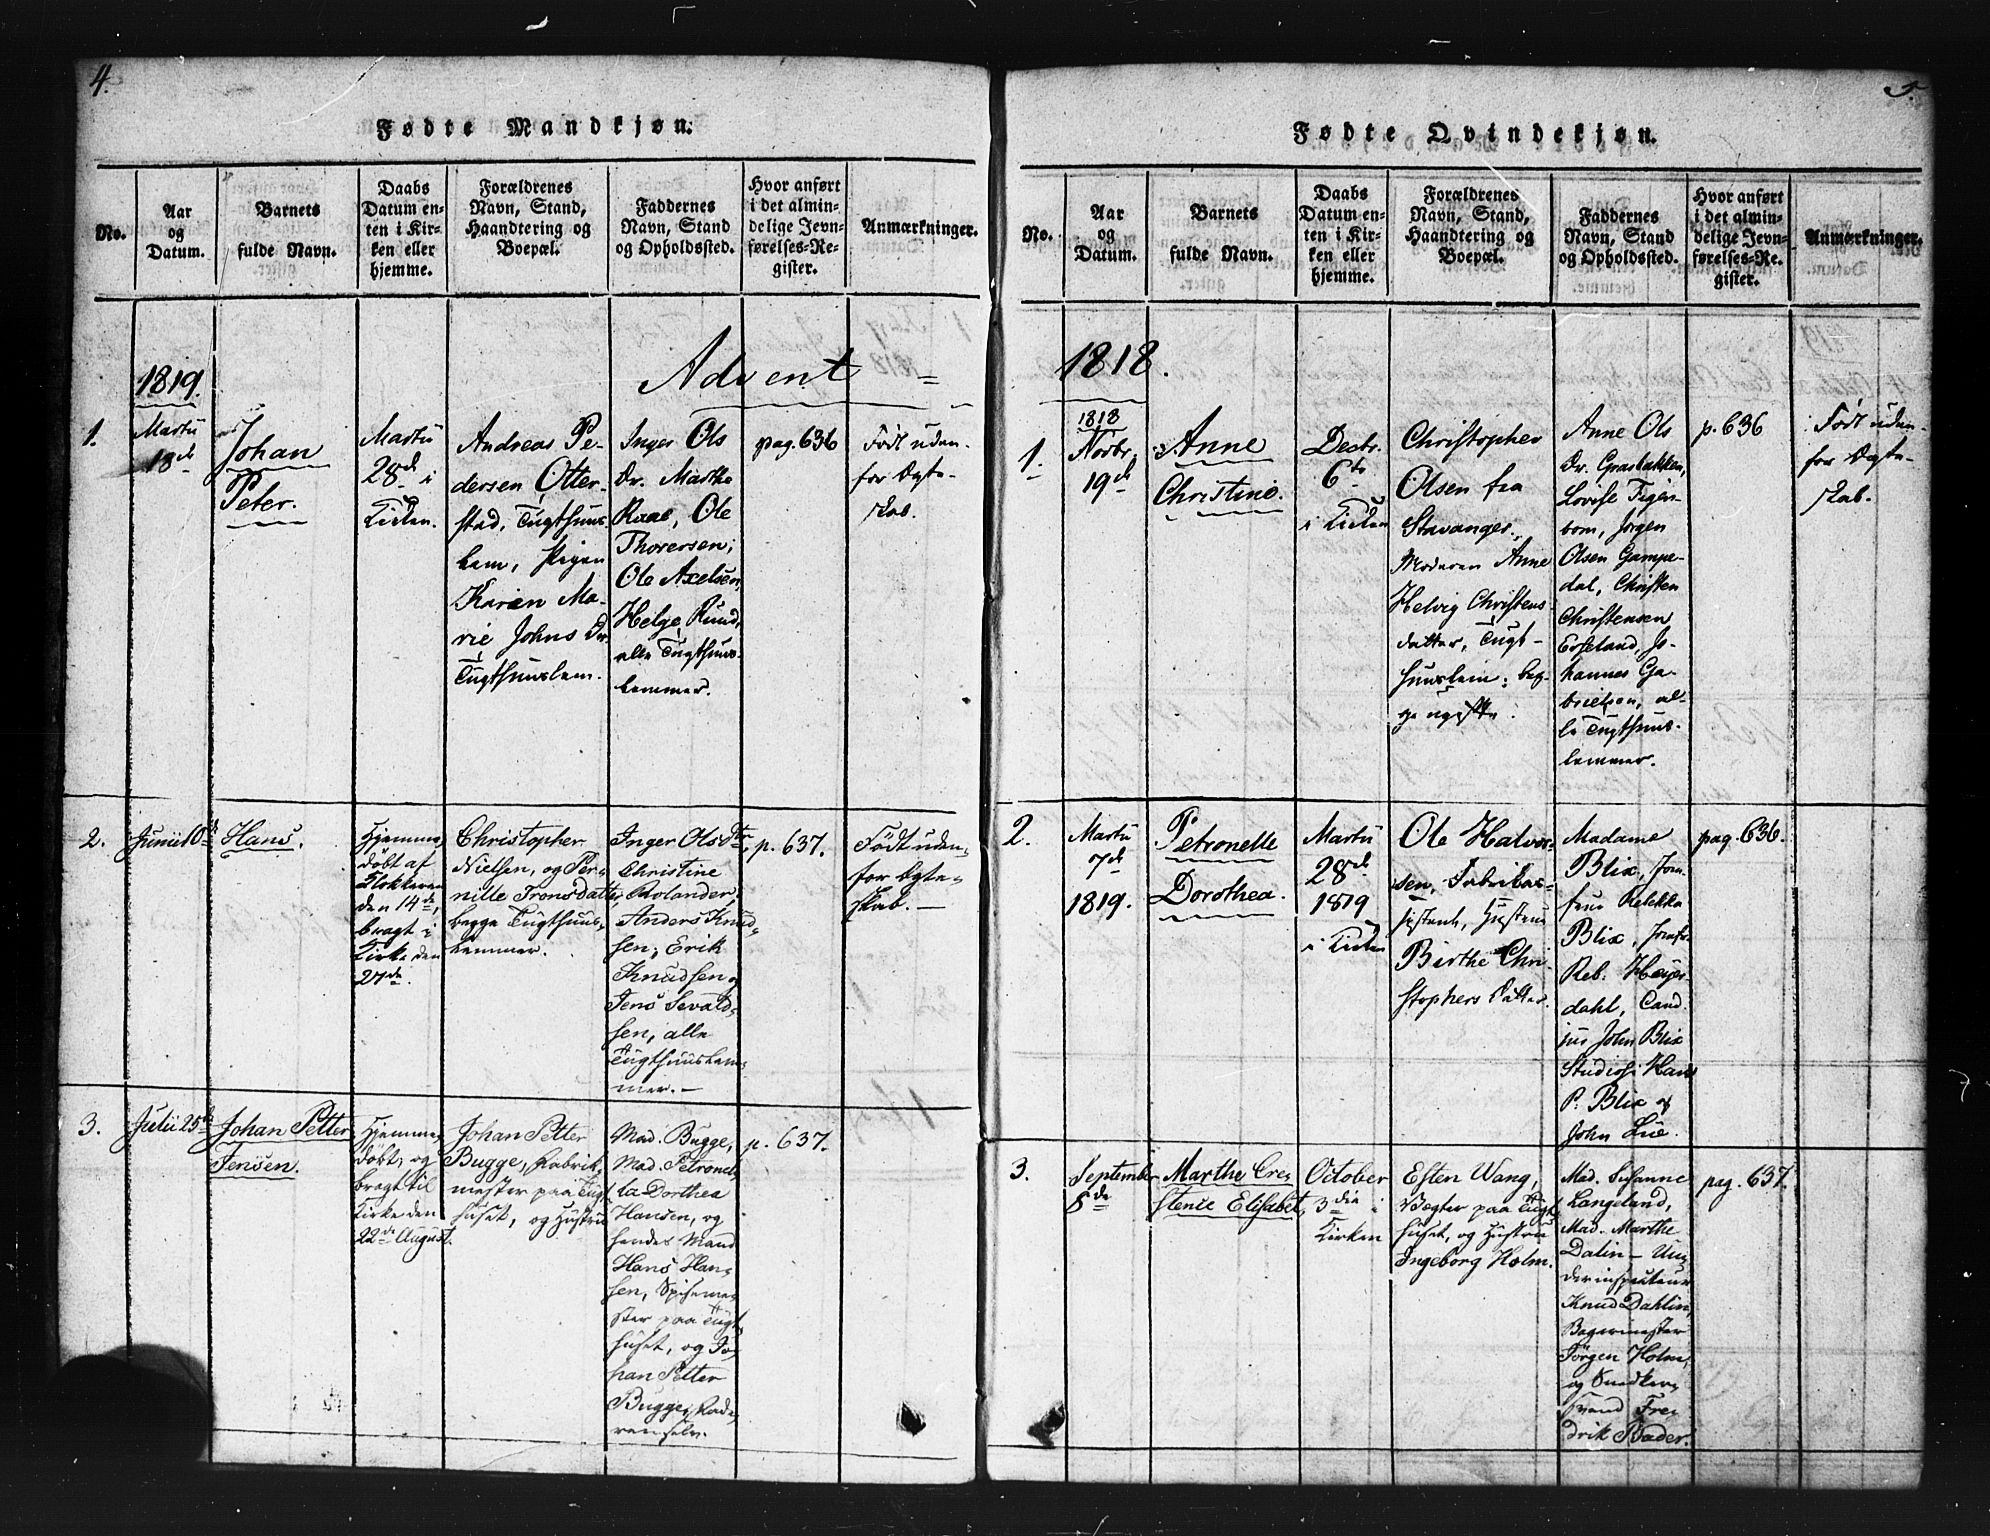 4.
Fødte Mandkjøn.
No.
Aar
og
Datum.
Barnets
fulde Navn.
Daabs
Datum en-
ten i Kir-
ken eller
hjemme.
Forældrenes
Navn, Stand,
Haandtering og
Boepæl.
Faddernes
Navn, Stand
og Opholdssted.
Hvor anført
i det almin-
delige Jevn-
førelses-Re-
gister.
Anmærkninger.
1819.
Advent
1.
Martii
18de
Johan
Peter.
Martii
28de i
Kirken.
Andreas Pe-
dersen Otter-
stad, Tugthuus-
lem, Pigen
Karen Ma-
rie Johns Dr.
Tugthuuslem.
Inger Ols
Dr. Marthe
Raae, Ole
Thorersen,
Ole Axelsen,
Helge Ruud,
alle Tugthuus-
lemmer.
pag. 636
Født uden-
for Ægte-
skab.
2.
Junii 10de
Hans.
Hjemme-
døbt af
Klokkeren
den 14de,
bragt i
Kirke den
27de.
Christopher
Nielsen, og Per-
nille Tronsdatter,
begge Tugthuus-
lemmer.
Inger Olsdtr,
Christine
Bolander,
Anders Knud-
sen, Erik
Knudsen og
Jens Sevald-
sen, alle
Tugthuuslem-
mer. —
p. 637.
Født uden-
for Ægte-
skab. —
3.
Julii 25de
Johan Petter
Jensen.
Hjemme-
døbt, og
bragt til
Kirke den
22de August.
Johan Petter
Bugge, Fabrik-
mester paa Tugt-
huset, og Hustru
Mad. Bugge,
Mad. Petronel-
la Dorthea
Hansen, og
hendes Mand
Hans Han-
sen, Spiseme-
ster paa Tugt-
huset, og Jo-
han Petter
Bugge, Fade-
ren selv.
p. 637.
5.
Fødte Qvindekjøn.
No.
Aar
og
Datum.
Barnets
fulde Navn.
Daabs
Datum en-
ten i Kir-
ken eller
hjemme.
Forældrenes
Navn, Stand,
Haandtering og
Boepæl.
Faddernes
Navn, Stand
og Opholdssted.
Hvor anført
i det almin-
delige Jevn-
førelses-Re-
gister.
Anmærkninger.
1818.
1.
1818
Novbr.
19de
Anne
Christine.
Decbr.
6te
i Kirken
Christopher
Olsen fra
Stavanger,
Moderen Anne
Helvig Christens-
datter, Tugt-
huuslem; beg-
ge ugifte.
Anne Ols
Dr. Grasbakken,
Lovise Tigen-
bom, Jørgen
Olsen Gampe-
dal, Christen
Christensen
Erseland, Jo-
hannes Ga-
brielsen, al-
le Tugthuus-
lemmer.
p. 636
Født uden-
for Ægte-
skab.
2.
Martii
7de
1819.
Petronelle
Dorothea.
Martii
28de
1819
i Kirken
Ole Halvor-
sen, Fabrikas-
sistent, Hustrue
Birthe Chri-
stophers Datter.
Madame
Blix, Jom-
frue Rebekka
Blix, Jomfr.
Reb. Heyer-
dahl, Cand.
jur John Blix
Studiosi Hans
P. Blix og
John Lie.
pag. 636.
3.
September
8de
Marthe Cres-
stence Elisabet,
October
3die i
Kirken
Esten Wang,
Vegter paa Tugt-
huset, og Hustru
Ingeborg Holm.
Mad. Susanne
Langeland,
Mad. Marthe
Dalin — Un-
derinspecteur
Knud Dahlin,
Bagermester
Jørgen Holm,
og Snedker-
svend Fre-
drik Bader.
pag. 637.